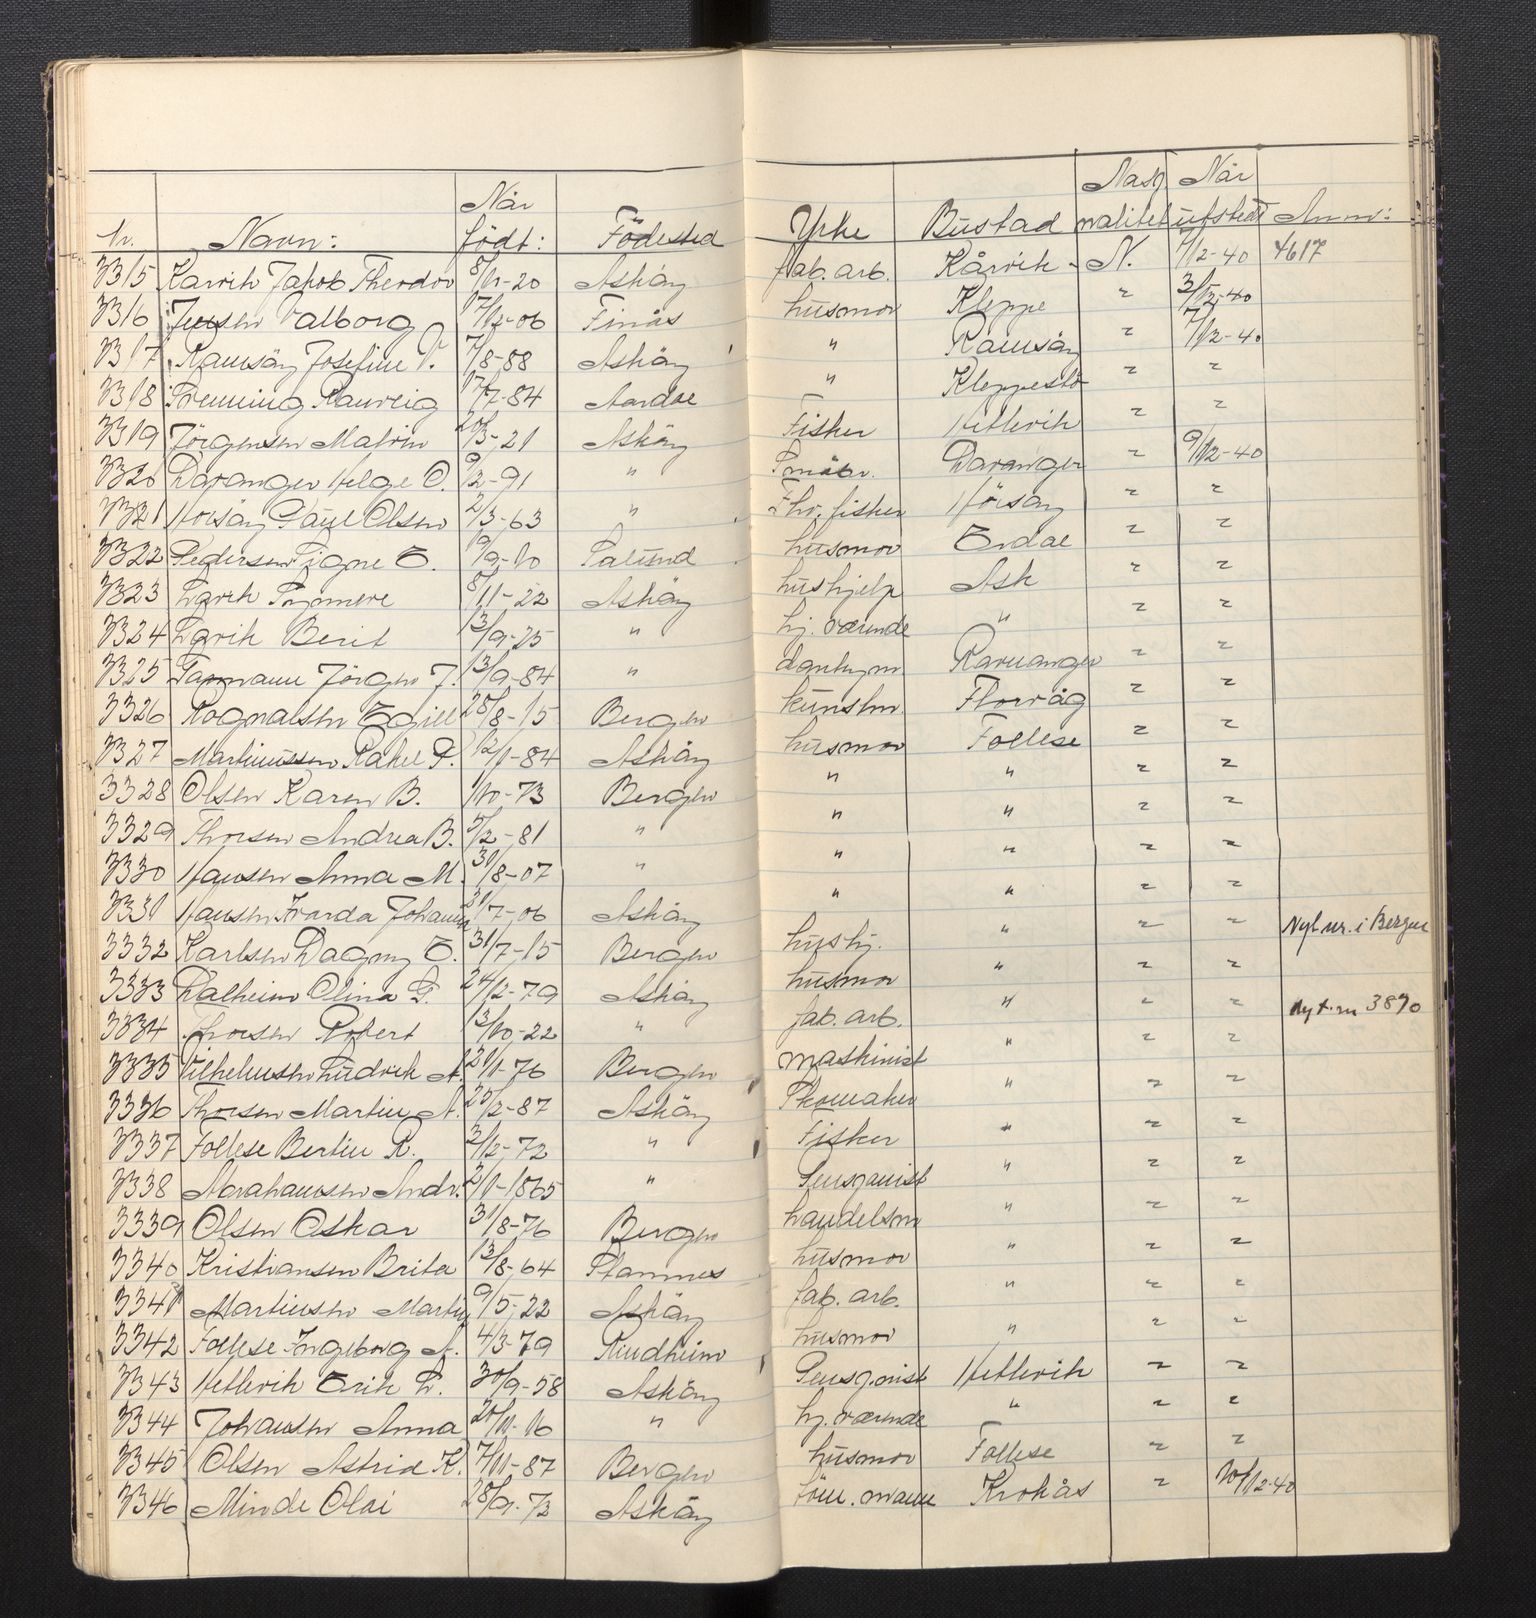 Nr. Navn: Når født: Fødested Yrke Bustad Nasjonalitet Når utstedt Anm:
3315 Karvik Jakob Theodor 8/11-20 Askøy fab. arb. Kårvik N. 7/12-40 4617
3316 Jensen Valborg 17/12-06 Finås husmor Kleppe " 3/12-40
3317 Ramsøy Josefine V. 7/8-88 Askøy " Ramsøy " 7/12-40
3318 Rannveig 17/7-84 " Kleppestø " "
3319 Jørgensen 20/3-21 Askøy Fisker Hetlevik " "
3320 Davanger Helge O. 9/2-91 " Småbr. Davanger " 9/12-40
3321 Horsøy Paul Olsen 2/3-63 " fisker Horsøy " "
3322 Pedersen Signe E. 19/9-10 husmor Erdal " "
3323 Synnøve 8/11-22 Askøy hushjelp Ask " "
3324 Berit 13/9-25 " hj. værende " " "
3325 Jørgen J. 13/9-84 " " "
3326 Rognalsen Egill 28/8-15 Bergen Florvåg " "
3327 Martinussen Rakel 12/1-84 Askøy husmor Follese " "
3328 Olsen Karen B. 1/10-73 Bergen " " " "
3329 Thorsen Andrea B. 5/2-81 " " " " "
3330 Hansen Anna M. 31/8-07 " " " " "
3331 Hansen Johanna 21/7-06 Askøy " " " "
3332 Karlsen Dagny E. 31/7-15 Bergen hushj. " " " Nyt nr. i Bergen
3333 Dalheim Olina 24/12-79 Askøy husmor " " "
3334 Thorsen Robert 13/10-22 " fab. arb. " " " Nyt nr 3890
3335 Vilhelmsen Ludvik A. 21/1-76 Bergen maskinist " " "
3336 Thorsen Martin A. 25/2-87 Askøy Skomaker " " "
3337 Follese Bertin R. 2/12-72 " Fisker " " "
3338 Abrahamsen Andr. 2/1-1865 " Pensjonist " " "
3339 Olsen Oskar 31/8-76 Bergen handelsm " " "
3340 Kristiansen Brita 13/8-64 Stamnes husmor " " "
3341 Martinsen Martin 9/5-22 Askøy fab. arb. " " "
3342 Follese Ingeborg A. 4/3-79 husmor " " "
3343 Hetlevik Erik 30/9-58 Askøy Pensjonist Hetlevik " "
3344 Johansen Anna 20/11-16 " hj. værende " " "
3345 Olsen Astrid K. 7/11-87 Bergen husmor Follese " "
3346 Minde Olai 28/9-73 Askøy Krokås " 10/12-40